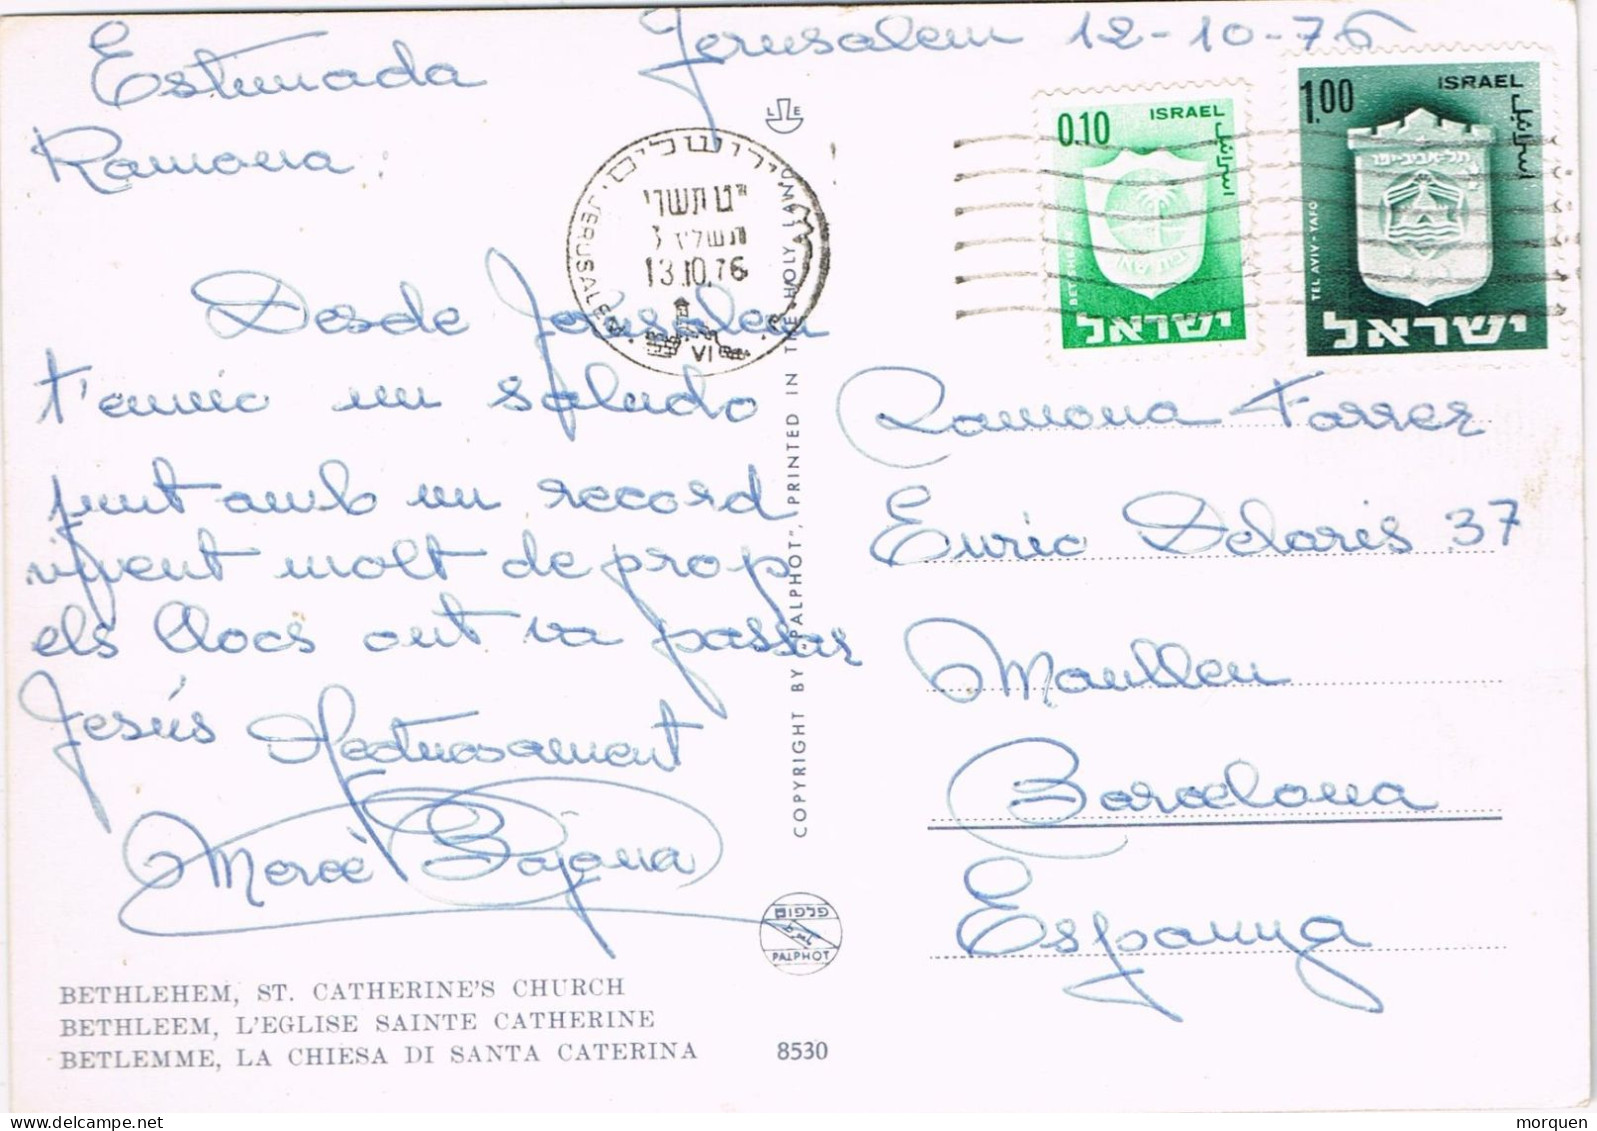 Jerusalem 12-10-76
Estimada
Ramona
Desde Jerusalem
t'envio un saludo
junt amb un record
vivent molt de prop
els llocs ont va passar
Jesús Afectuosament
Mercè Bajona
BETHLEHEM, ST. CATHERINE'S CHURCH
BETHLEEM, L'EGLISE SAINTE CATHERINE
BETLEMME, LA CHIESA DI SANTA CATERINA 8530
ירושלים
JERUSALEM
י"ט תשרי
תשל"ז
13.10.76
VI
L E
COPYRIGHT BY "PALPHOT", PRINTED IN THE HOLY LAND
פלפוט
PALPHOT
0.10 ISRAEL
اسرائيل
ישראל
1.00 ISRAEL
اسرائيل
תל-אביב-יפו
TEL AVIV-YAFO
ישראל
Ramona Farrer
Enric Delaris 37
Manlleu
Barcelona
Espanya
morquen